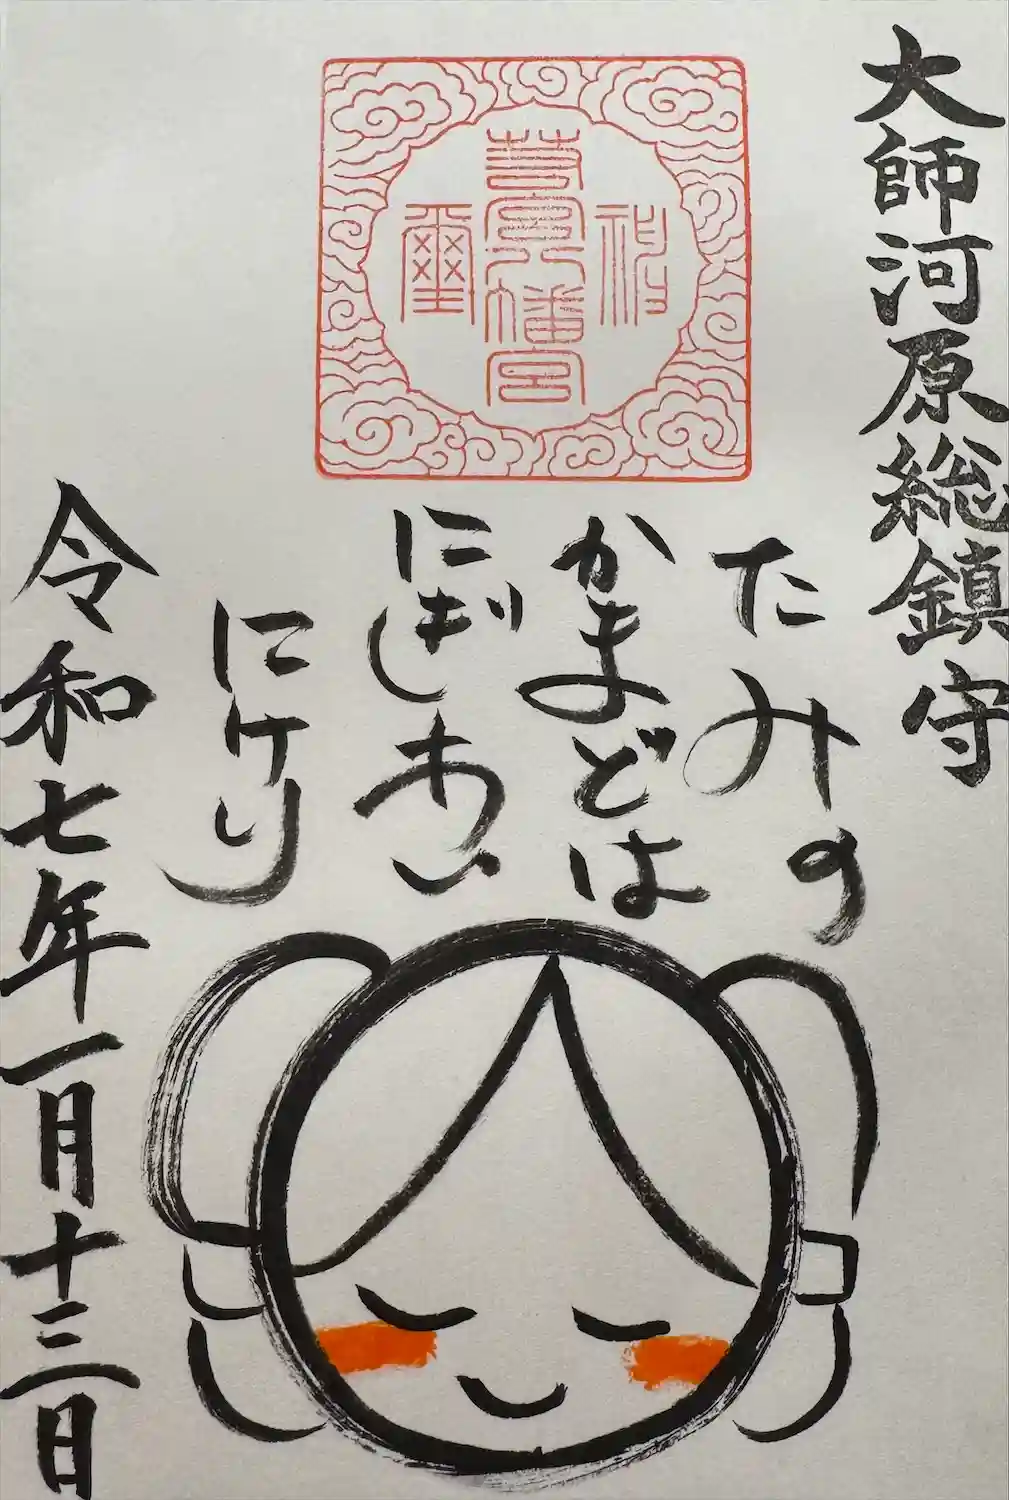 大師河原総鎮守
若宮八幡宮
璽
たみの
かまどは
にぎわい
にけり
令和七年一月十三日